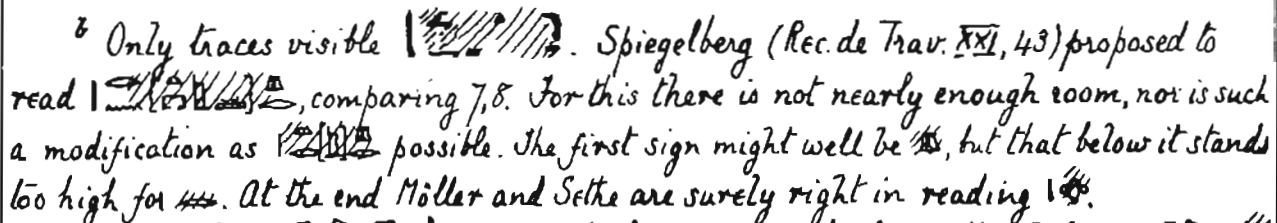 b Only traces visible . Spiegelberg (Rec. de Trav. XXI, 43) proposed to
read , comparing 7,8. For this there is not nearly enough room, nor is such
a modification as possible. The first sign might well be , but that below it stands
too high for . At the end Möller and Sethe are surely right in reading .